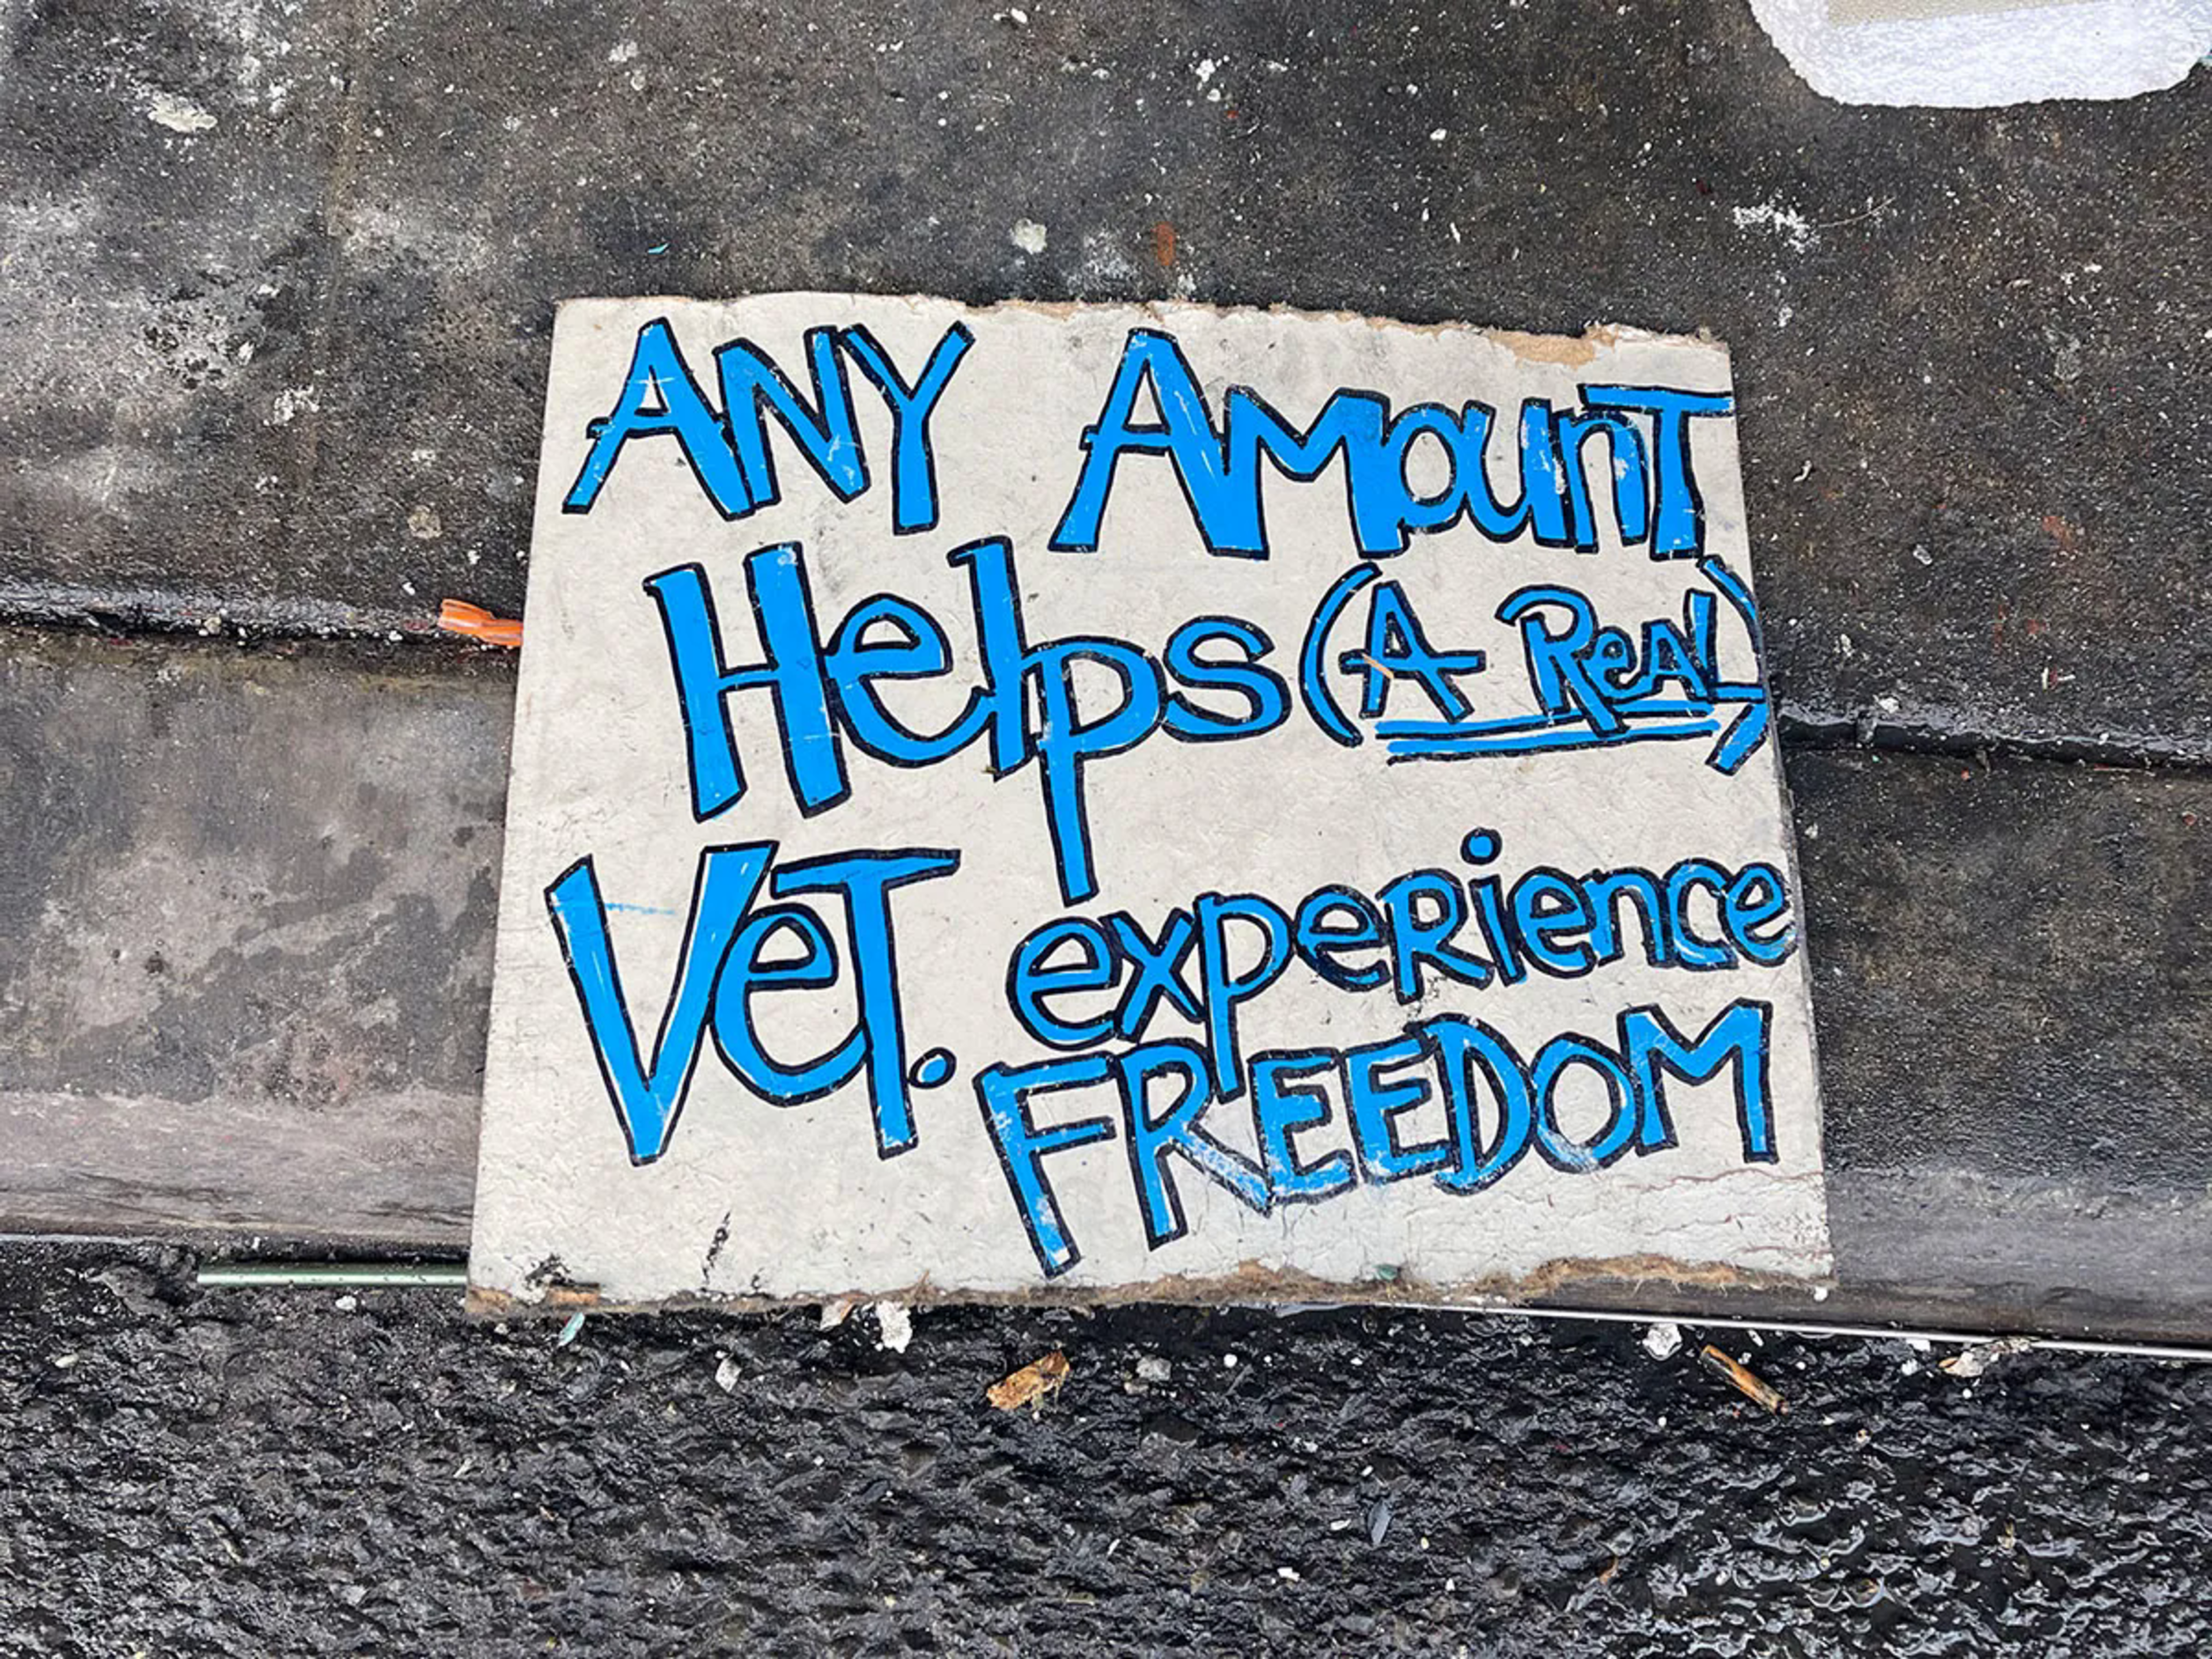 ANY AmounT
Helps (A ReAL)
VeT. expeRience
FREEDOM